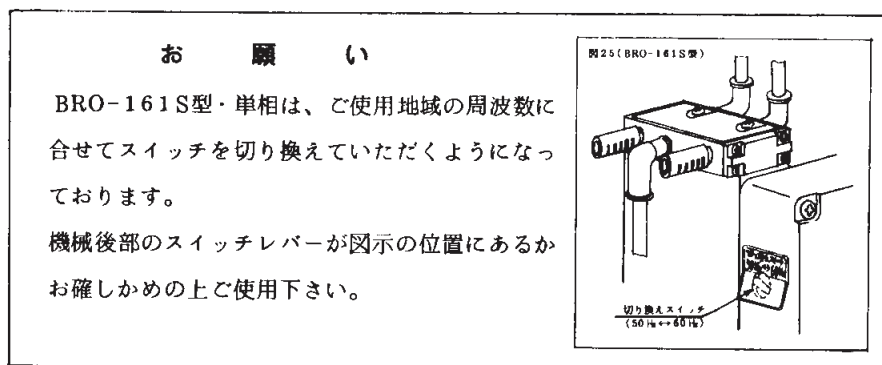 お願い
BRO-161S型・単相は、ご使用地域の周波数に
合せてスイッチを切り換えていただくようになっ
ております。
機械後部のスイッチレバーが図示の位置にあるか
お確しかめの上ご使用下さい。
図25(BRO-161S型)
切り換えスイッチ
(50Hz↔60Hz)